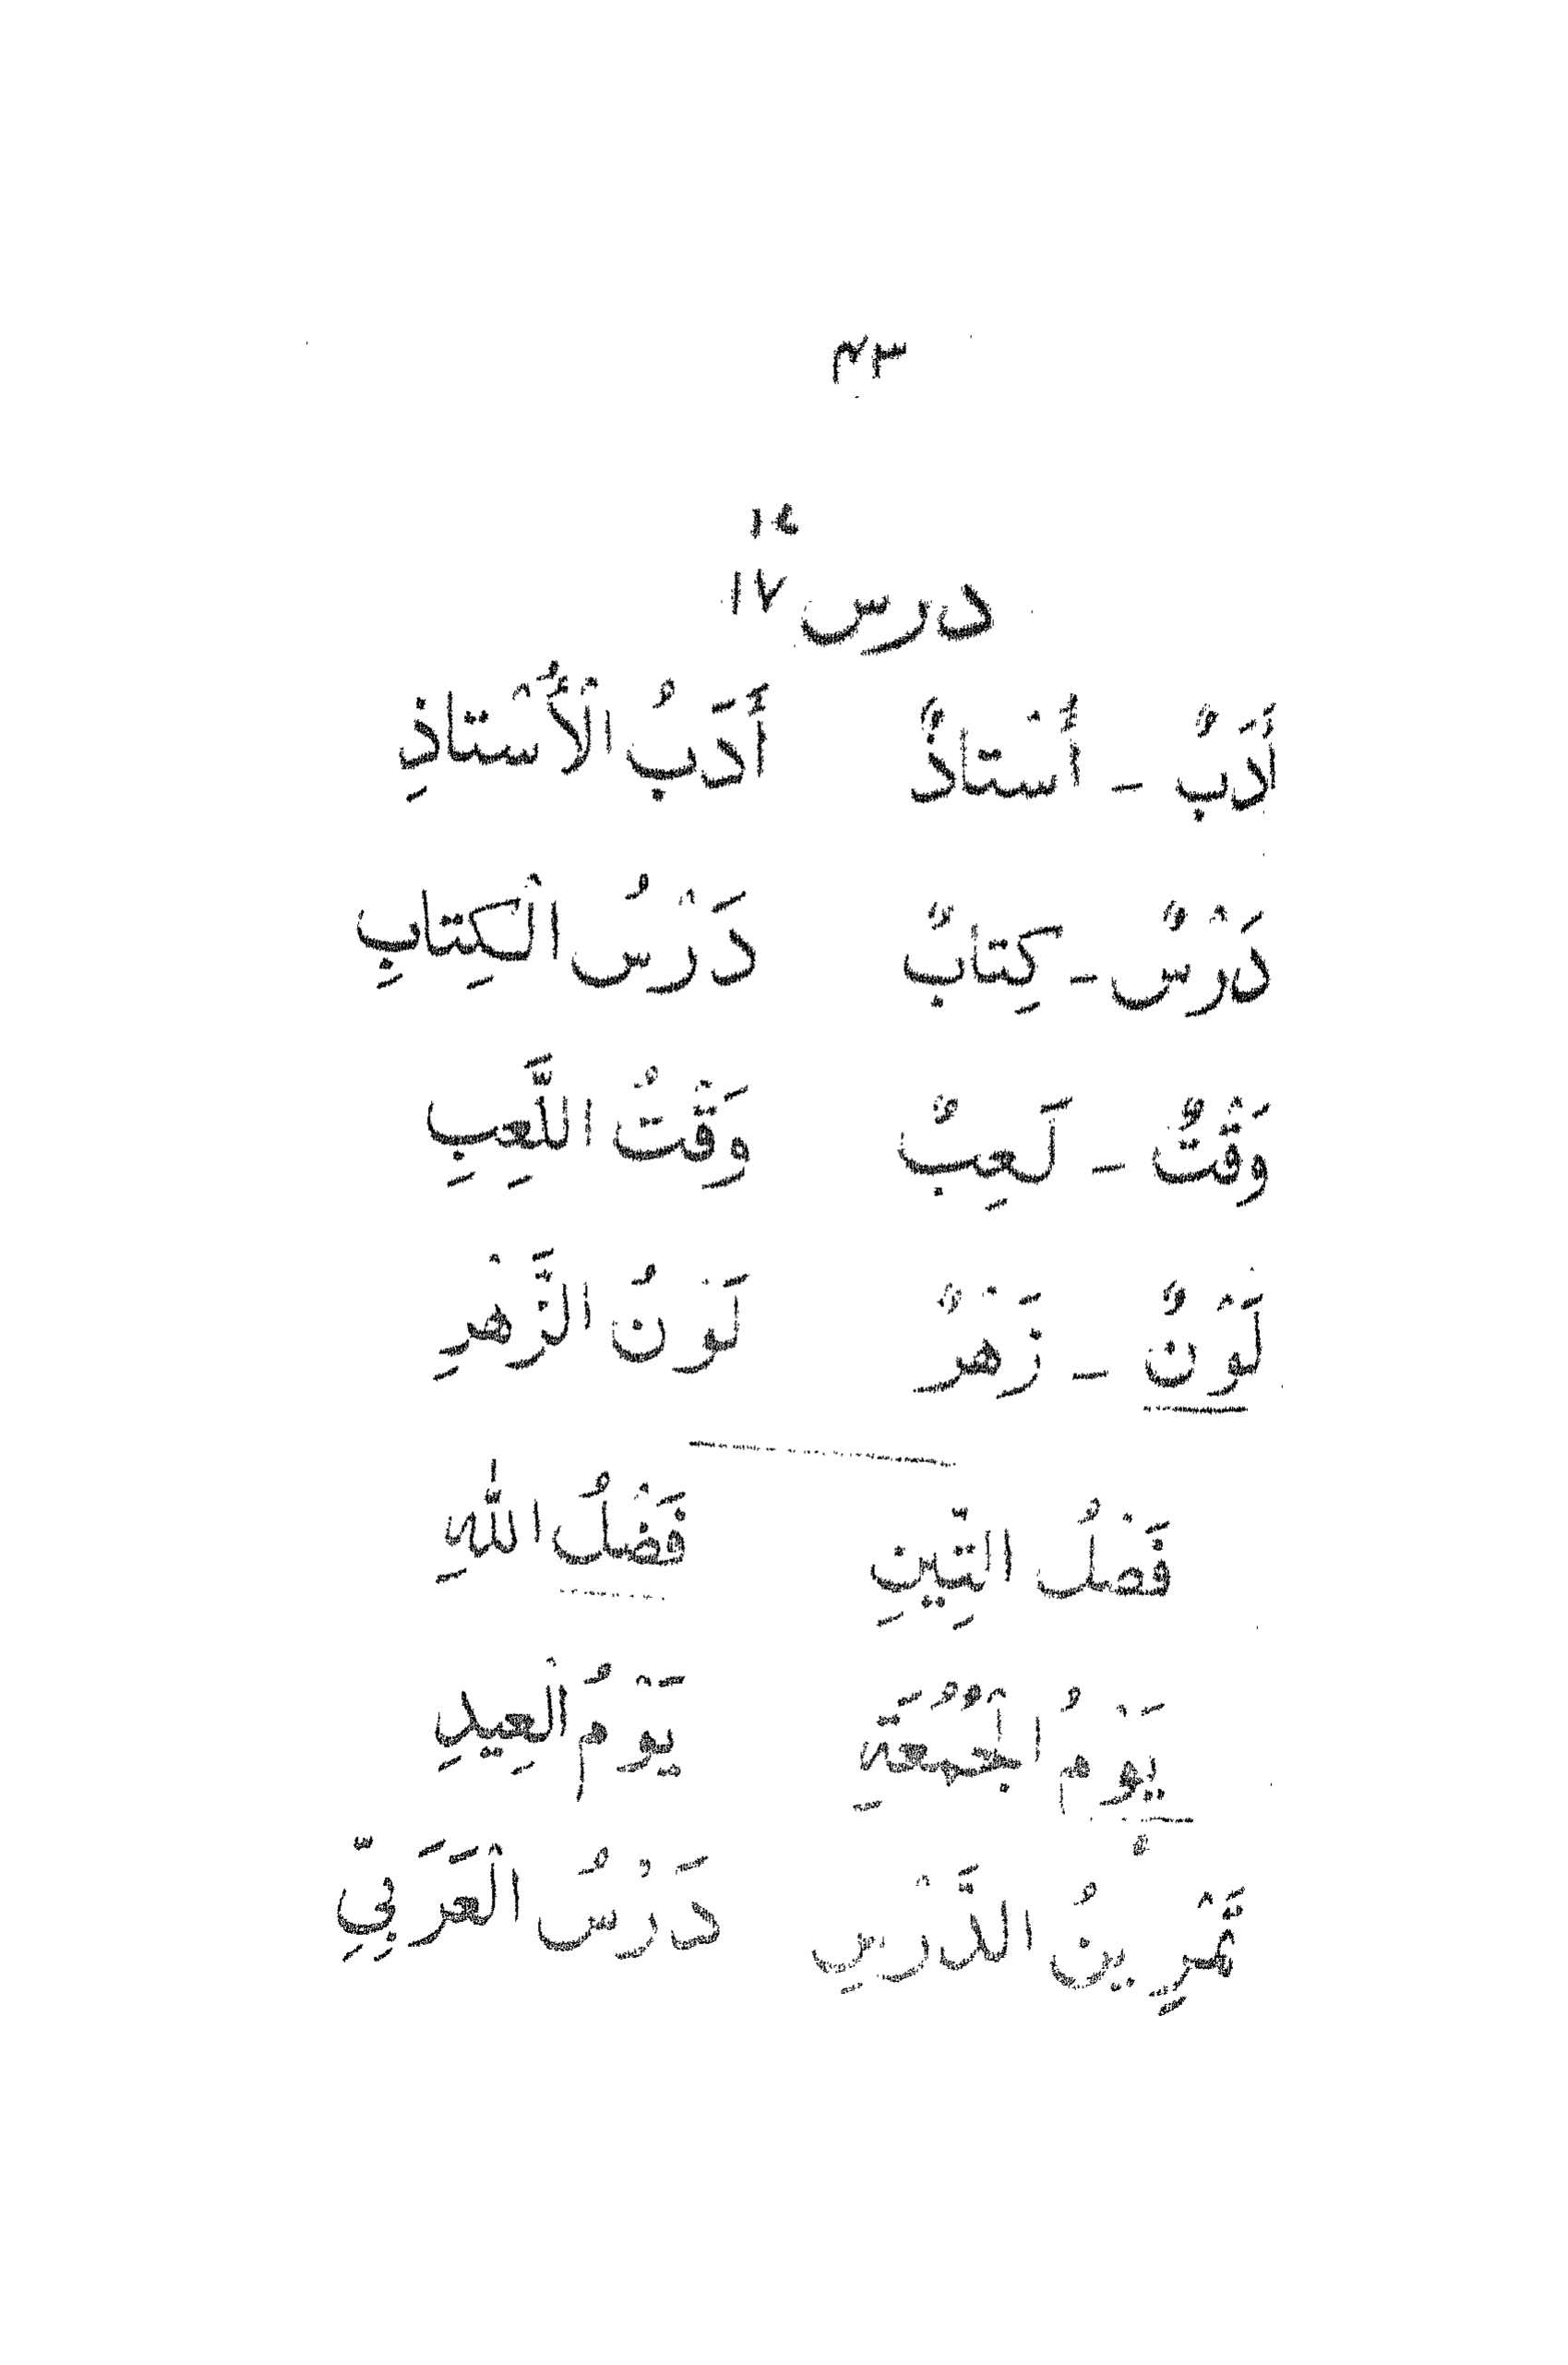 ۴۳
١٤
درس ١٧
أَدَبٌ - أُسْتاذٌ أَدَبُ الْأُسْتاذِ
دَرْسٌ - كِتابٌ دَرْسُ الْكِتابِ
وَقْتٌ - لَعِبٌ وَقْتُ اللَّعِبِ
لَوْنٌ - زَهْرٌ لَوْنُ الزَّهْرِ
فَضْلُ التِّينِ فَضْلُ اللهِ
يَوْمُ الْجُمُعَةِ يَوْمُ الْعِيدِ
تَمْرِينُ الدَّرْسِ دَرْسُ الْعَرَبِيِّ